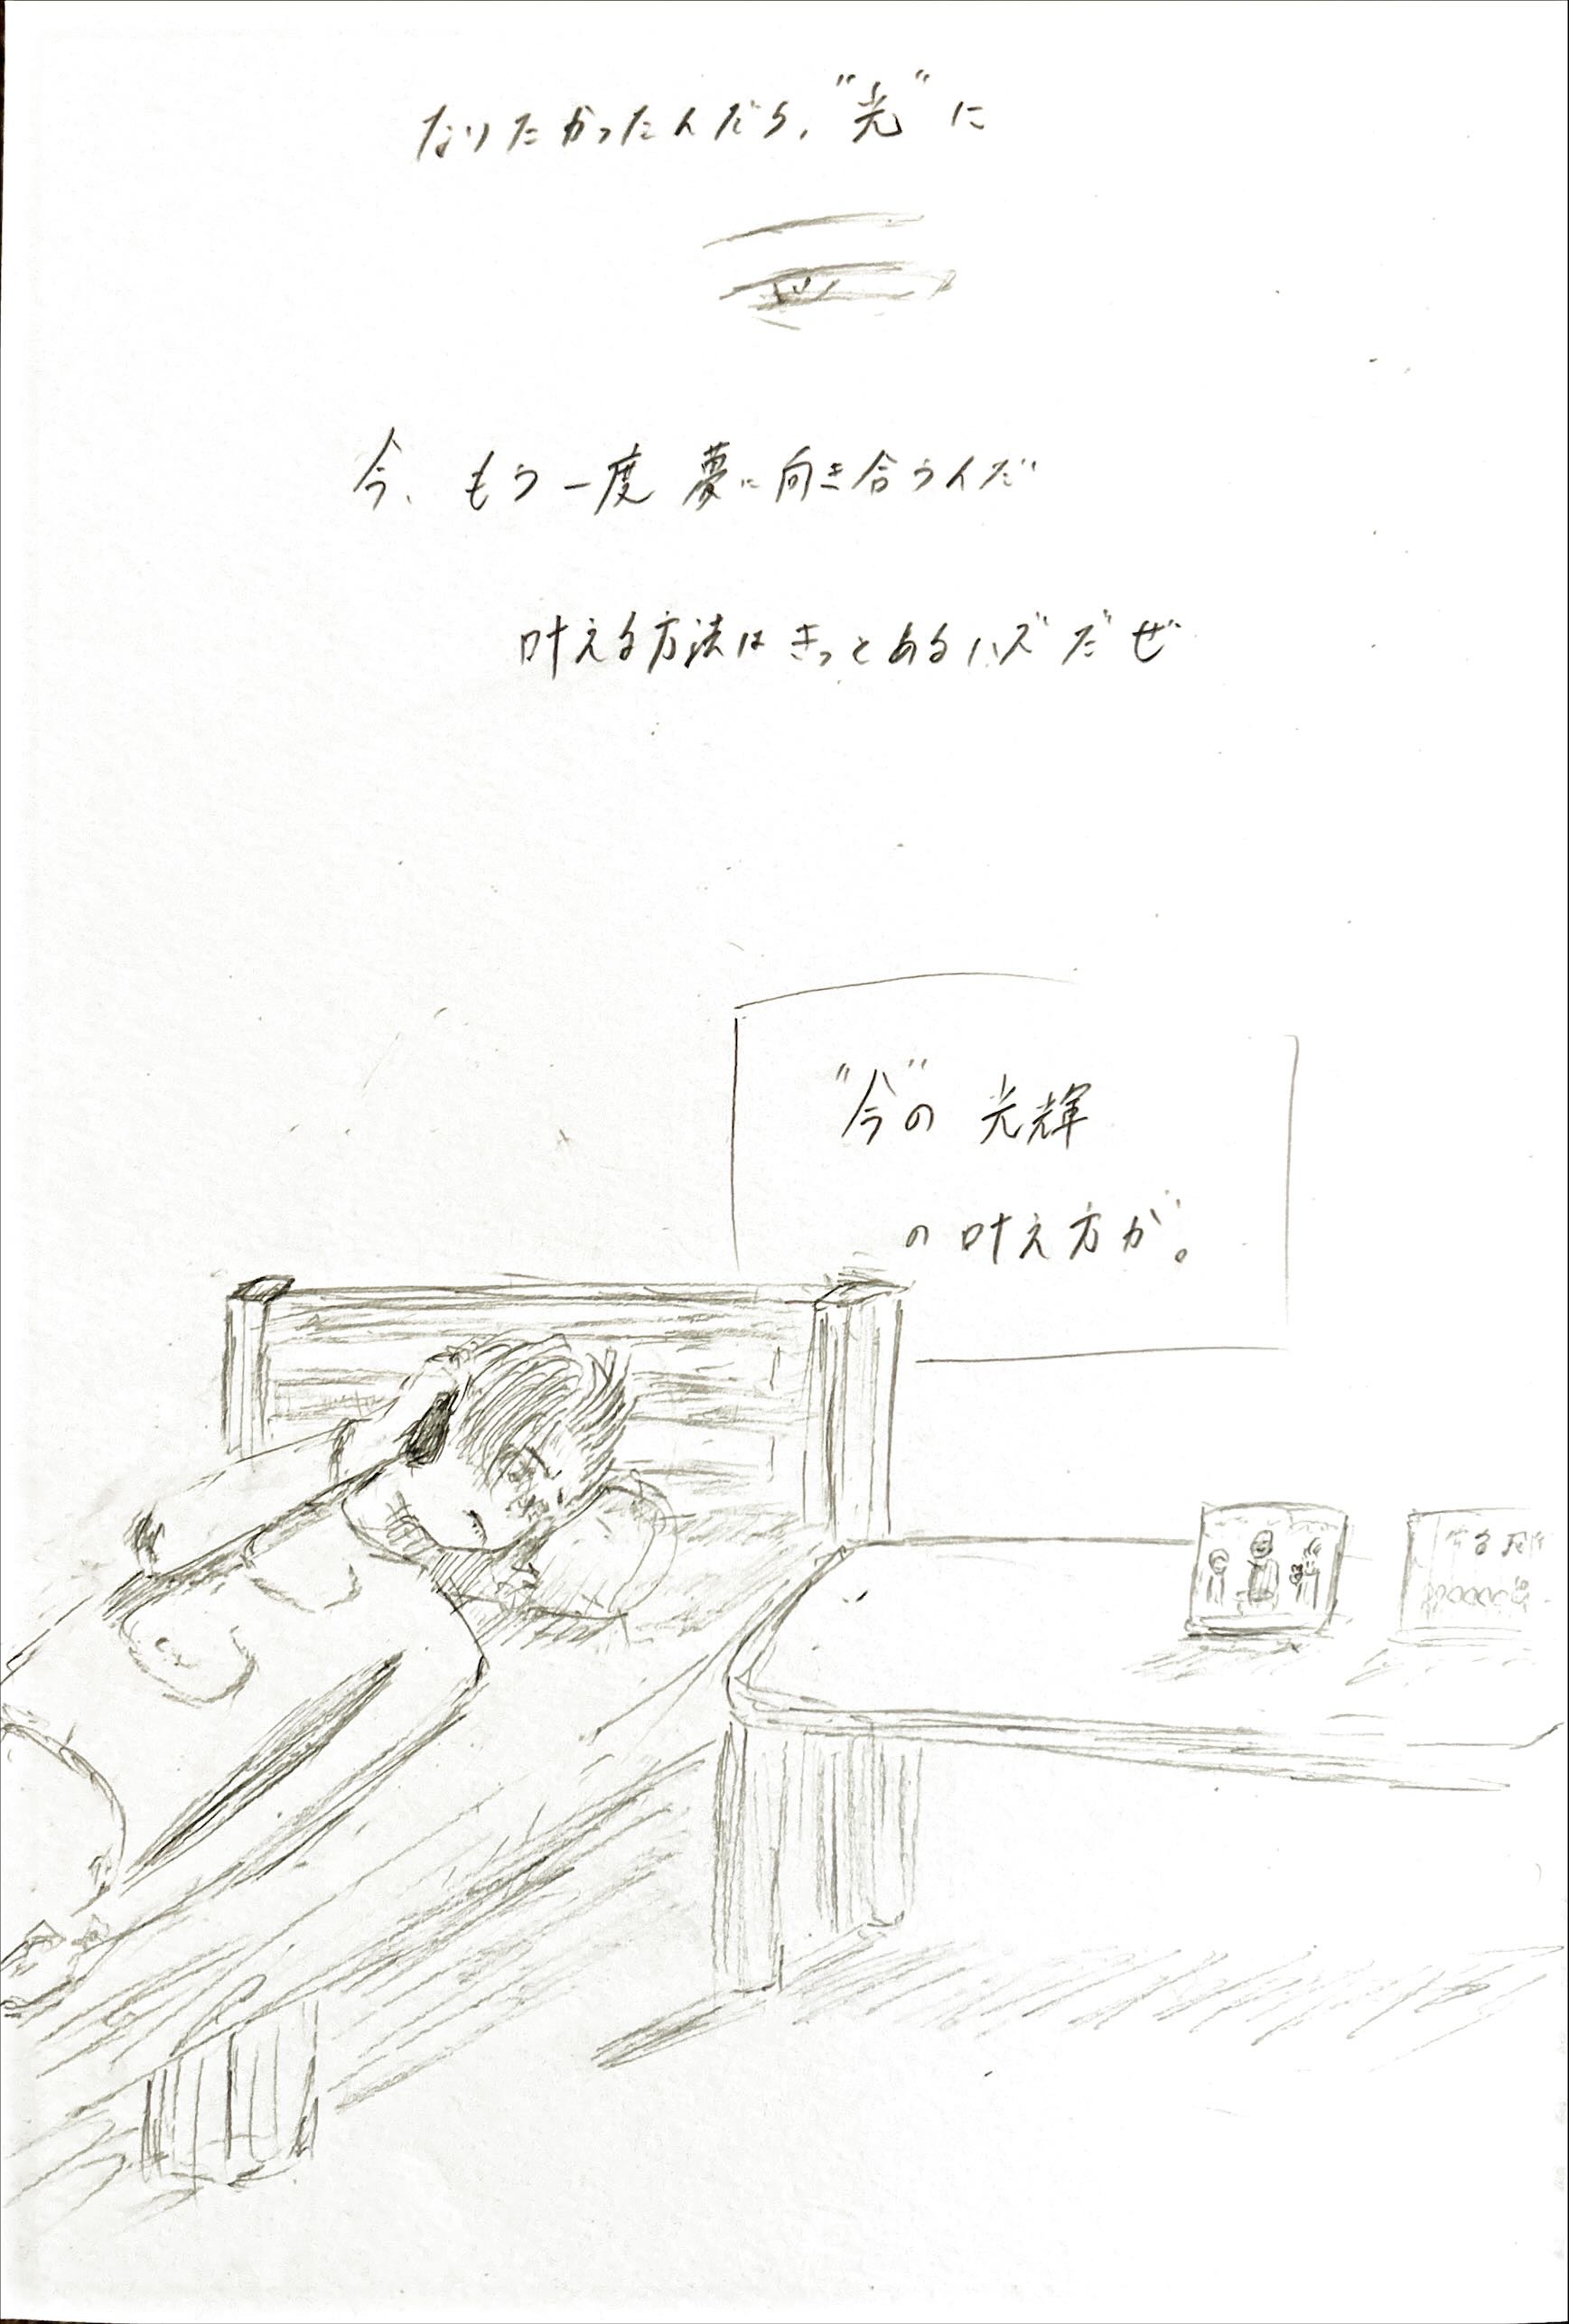 なりたかったんだろ、"光"に
今、もう一度 夢に向き合うんだ
叶える方法はきっとあるハズだぜ
"今"の 光輝
の叶え方が。